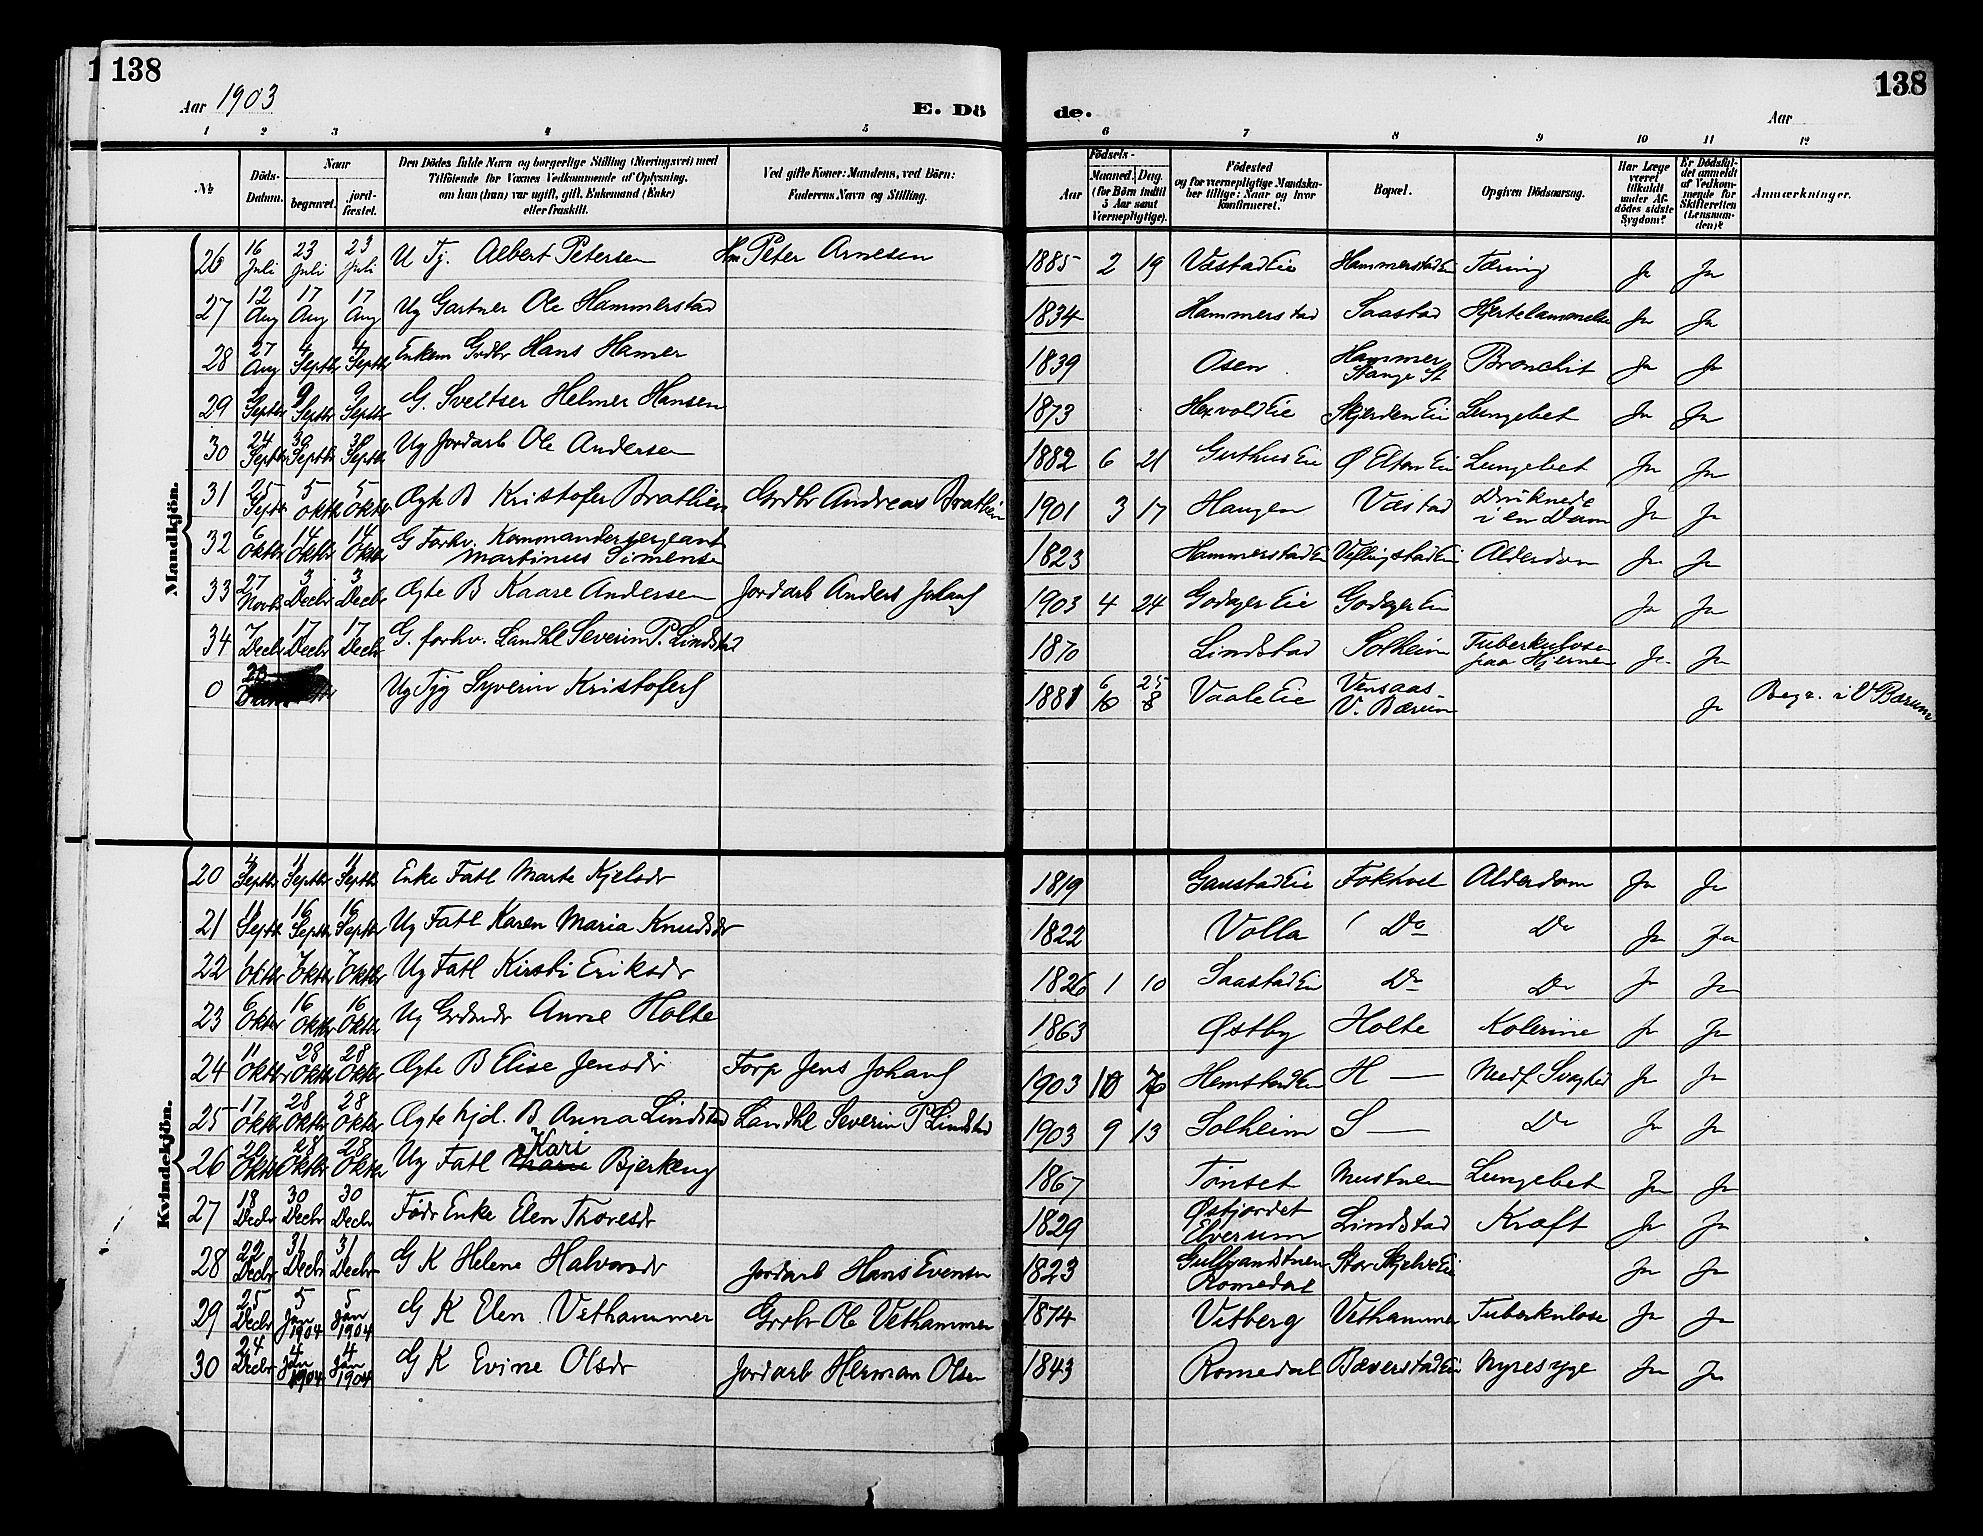 138
138
Aar 1903
E. Dö
de.
Aar
1 2 3 4 5 6 7 8 9 10 11 12
№
Döds-Datum.
Naar
begravet.
jord-fæstet.
Den Dödes fulde Navn og borgerlige Stilling (Næringsvei) med Tilföiende for Voxnes Vedkommende af Oplysning, om han (hun) var ugift, gift, Enkemand (Enke) eller fraskilt.
Ved gifte Koner: Mandens, ved Börn: Faderens Navn og Stilling.
Födsels-
Aar
Maaned. Dag.
(for Börn indtil 5 Aar samt Værnepligtige).
Födested og for værnepligtige Mandskaber tillige: Naar og hvor konfirmeret.
Bopæl.
Opgiven Dödsaarsag.
Har Læge været tilkaldt under Afdödes sidste Sygdom?
Er Dödsfaldet anmeldt af Vedkommende for Skifteretten (Lensmanden)?
Anmærkninger.
Mandkjön.
26 16 Juli 23 Juli 23 Juli U Tj. Albert Petersen Hm Peter Arnesen 1885 2 19 Væstad Eie Hammerstad Ei Tæring Ja Ja
27 12 Aug 17 Aug 17 Aug Ug Gartner Ole Hammerstad 1834 Hammerstad Saastad Hjertelammelse Ja Ja
28 27 Aug 4 Septbr 4 Septbr Enkem Grdbr Hans Hamer 1839 Osen Hammer Stange St Bronchit Ja Ja
29 Septbr 9 Septbr 9 Septbr G. Sveitser Helmer Hansen 1873 Hexvold Eie Skjerden Ei Lungebet Ja Ja
30 24 Septbr 30 Septbr 30 Septbr Ug Jordarb Ole Andersen 1882 6 21 Guthus Eie Ø Elton Ei Lungebet Ja Ja
31 25 Septr 5 Oktbr 5 Oktbr Ægte B Kristofer Brathien Grdbr Andreas Brathien 1901 3 17 Haugen Væstad Druknede i en Dam Ja Ja
32 6 Oktbr 14 Oktbr 14 Oktbr G Forhv. Kommandersergeant Martinus Simensen 1823 Hammerstad Ei Vellingstad Ei Alderdom Ja Ja
33 27 Novbr 3 Decbr 3 Decbr Ægte B Kaare Andersen Jordarb Anders Johans 1903 4 24 Godager Eie Godager Ei Ja Ja
34 7 Decbr 17 Decbr 17 Decbr G. forhv. Landhl Severin P. Lindstad 1870 Lindstad Solheim Tuberkulose paa Hjernen Ja Ja
0 28 Ug Tjg Syverin Kristofers 1881 6 25 8 Vaale Eie Vensaas V. Bærum Ja Begr. i V Bærum
Kvindekjön.
20 4 Septbr 11 Septbr 11 Septbr Enke Fatl Marte Kjelsdr 1819 Gaustad Eie Fokhol Alderdom Ja Ja
21 11 Septbr 16 Septbr 16 Septbr Ug Fatl Karen Maria Knudsdr 1822 Volla Do Do Ja Ja
22 1 Oktbr 7 Oktbr 7 Oktbr Ug Fatl Kirsti Eriksdr 1826 1 10 Saastad Ei Do Do Ja Ja
23 6 Oktbr 16 Oktbr 16 Oktbr Ug Grdmdr Anne Holte 1863 Østby Holte Kolerine Ja Ja
24 11 Oktbr 28 Oktbr 28 Oktbr Ægte B Elise Jensdr Forp Jens Johans 1903 10 Hemstad Ei H — Medf Svaghed Ja Ja
25 17 Oktbr 28 Oktbr 28 Oktbr Ægte hjd. B Anna Lindstad Landhl Severin P Lindstad 1903 9 13 Solheim S — Do Ja Ja
26 20 Oktbr 28 Oktbr 28 Oktbr Ug Fatl Marie Kari Bjerkeng 1867 Tønset Mustuen Lungebet Ja Ja
27 18 Decbr 30 Decbr 30 Decbr Fødr Enke Elen Thoresdr 1829 Østfjordet Elverum Lindstad Kræft Ja Ja
28 22 Decbr 31 Decbr 31 Decbr G K Helene Halvorsdr Jordarb Hans Evensen 1823 Romedal Stor Skjelve Ei Ja Ja
29 25 Decbr 5 Jan 1904 5 Jan 1904 G K Elen Vethammer Grdbr Ole Vethammer 1874 Vitberg Vethammer Tuberkulose Ja Ja
30 24 Decbr 4 Jan 1904 4 Jan 1904 G K Evine Olsdr Jordarb Herman Olsen 1843 Romedal Bæverstad Ei Nyresyge Ja Ja